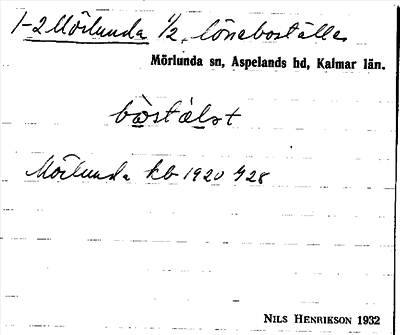 1-2 Mörlunda 1/2, löneboställe
Mörlunda sn, Aspelands hd, Kalmar län.
bòstálət
Mörlunda kb 1920 s 28
NILS HENRIKSON 1932